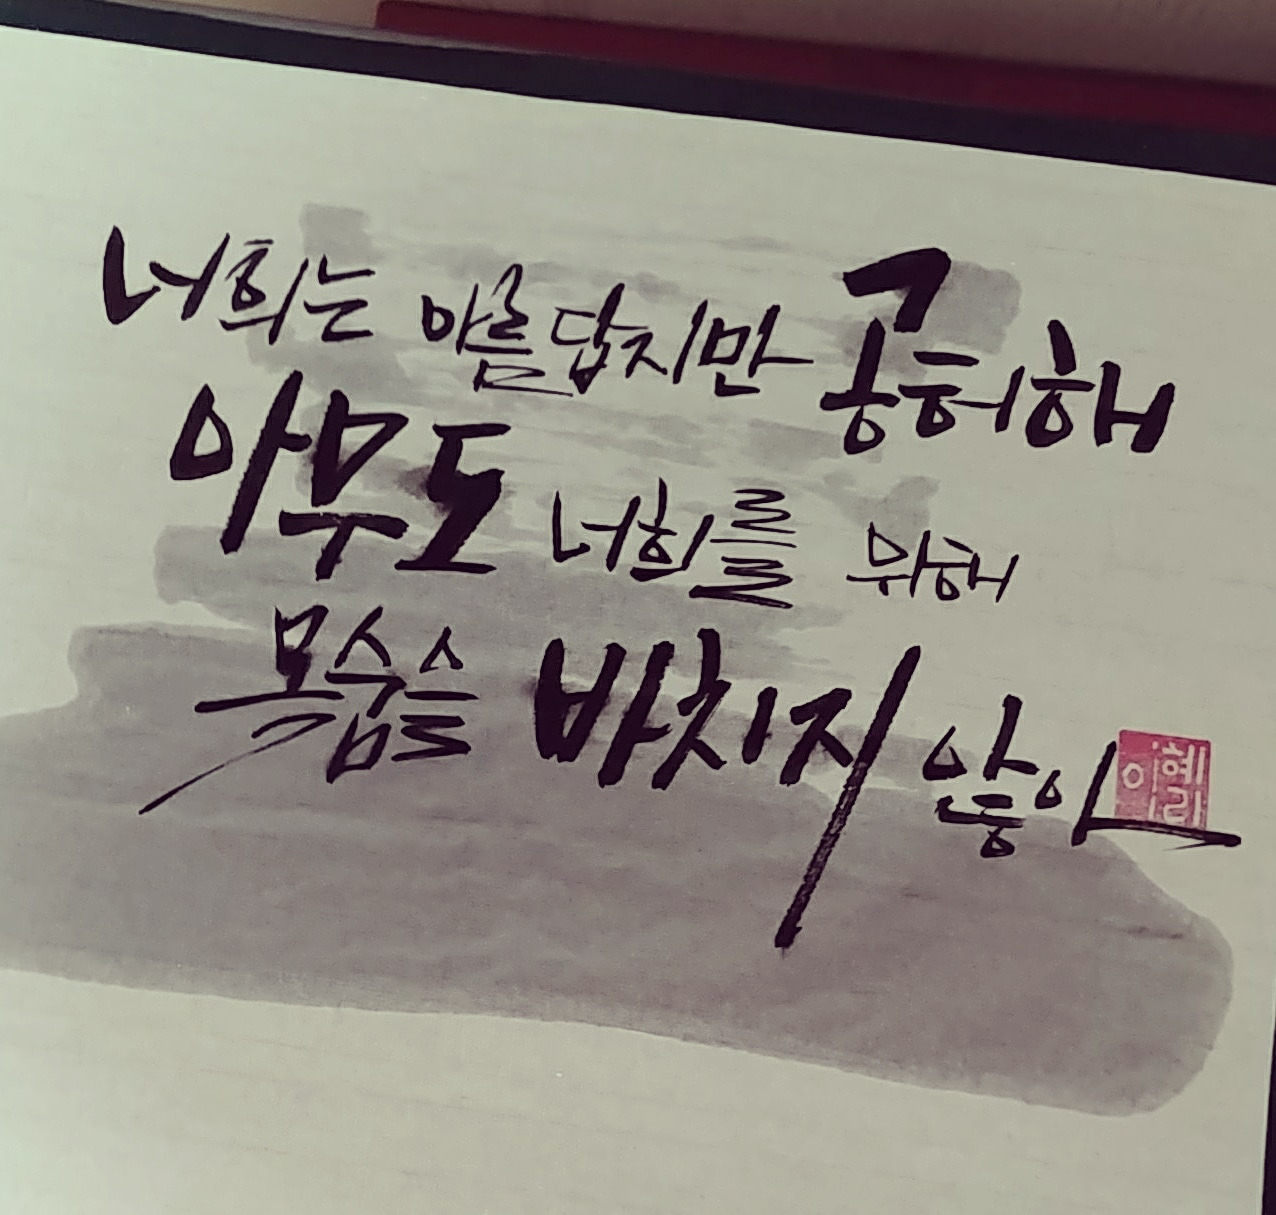 너희는 아름답지만 공허해
아무도 너희를 위해
목숨을 바치지 않아